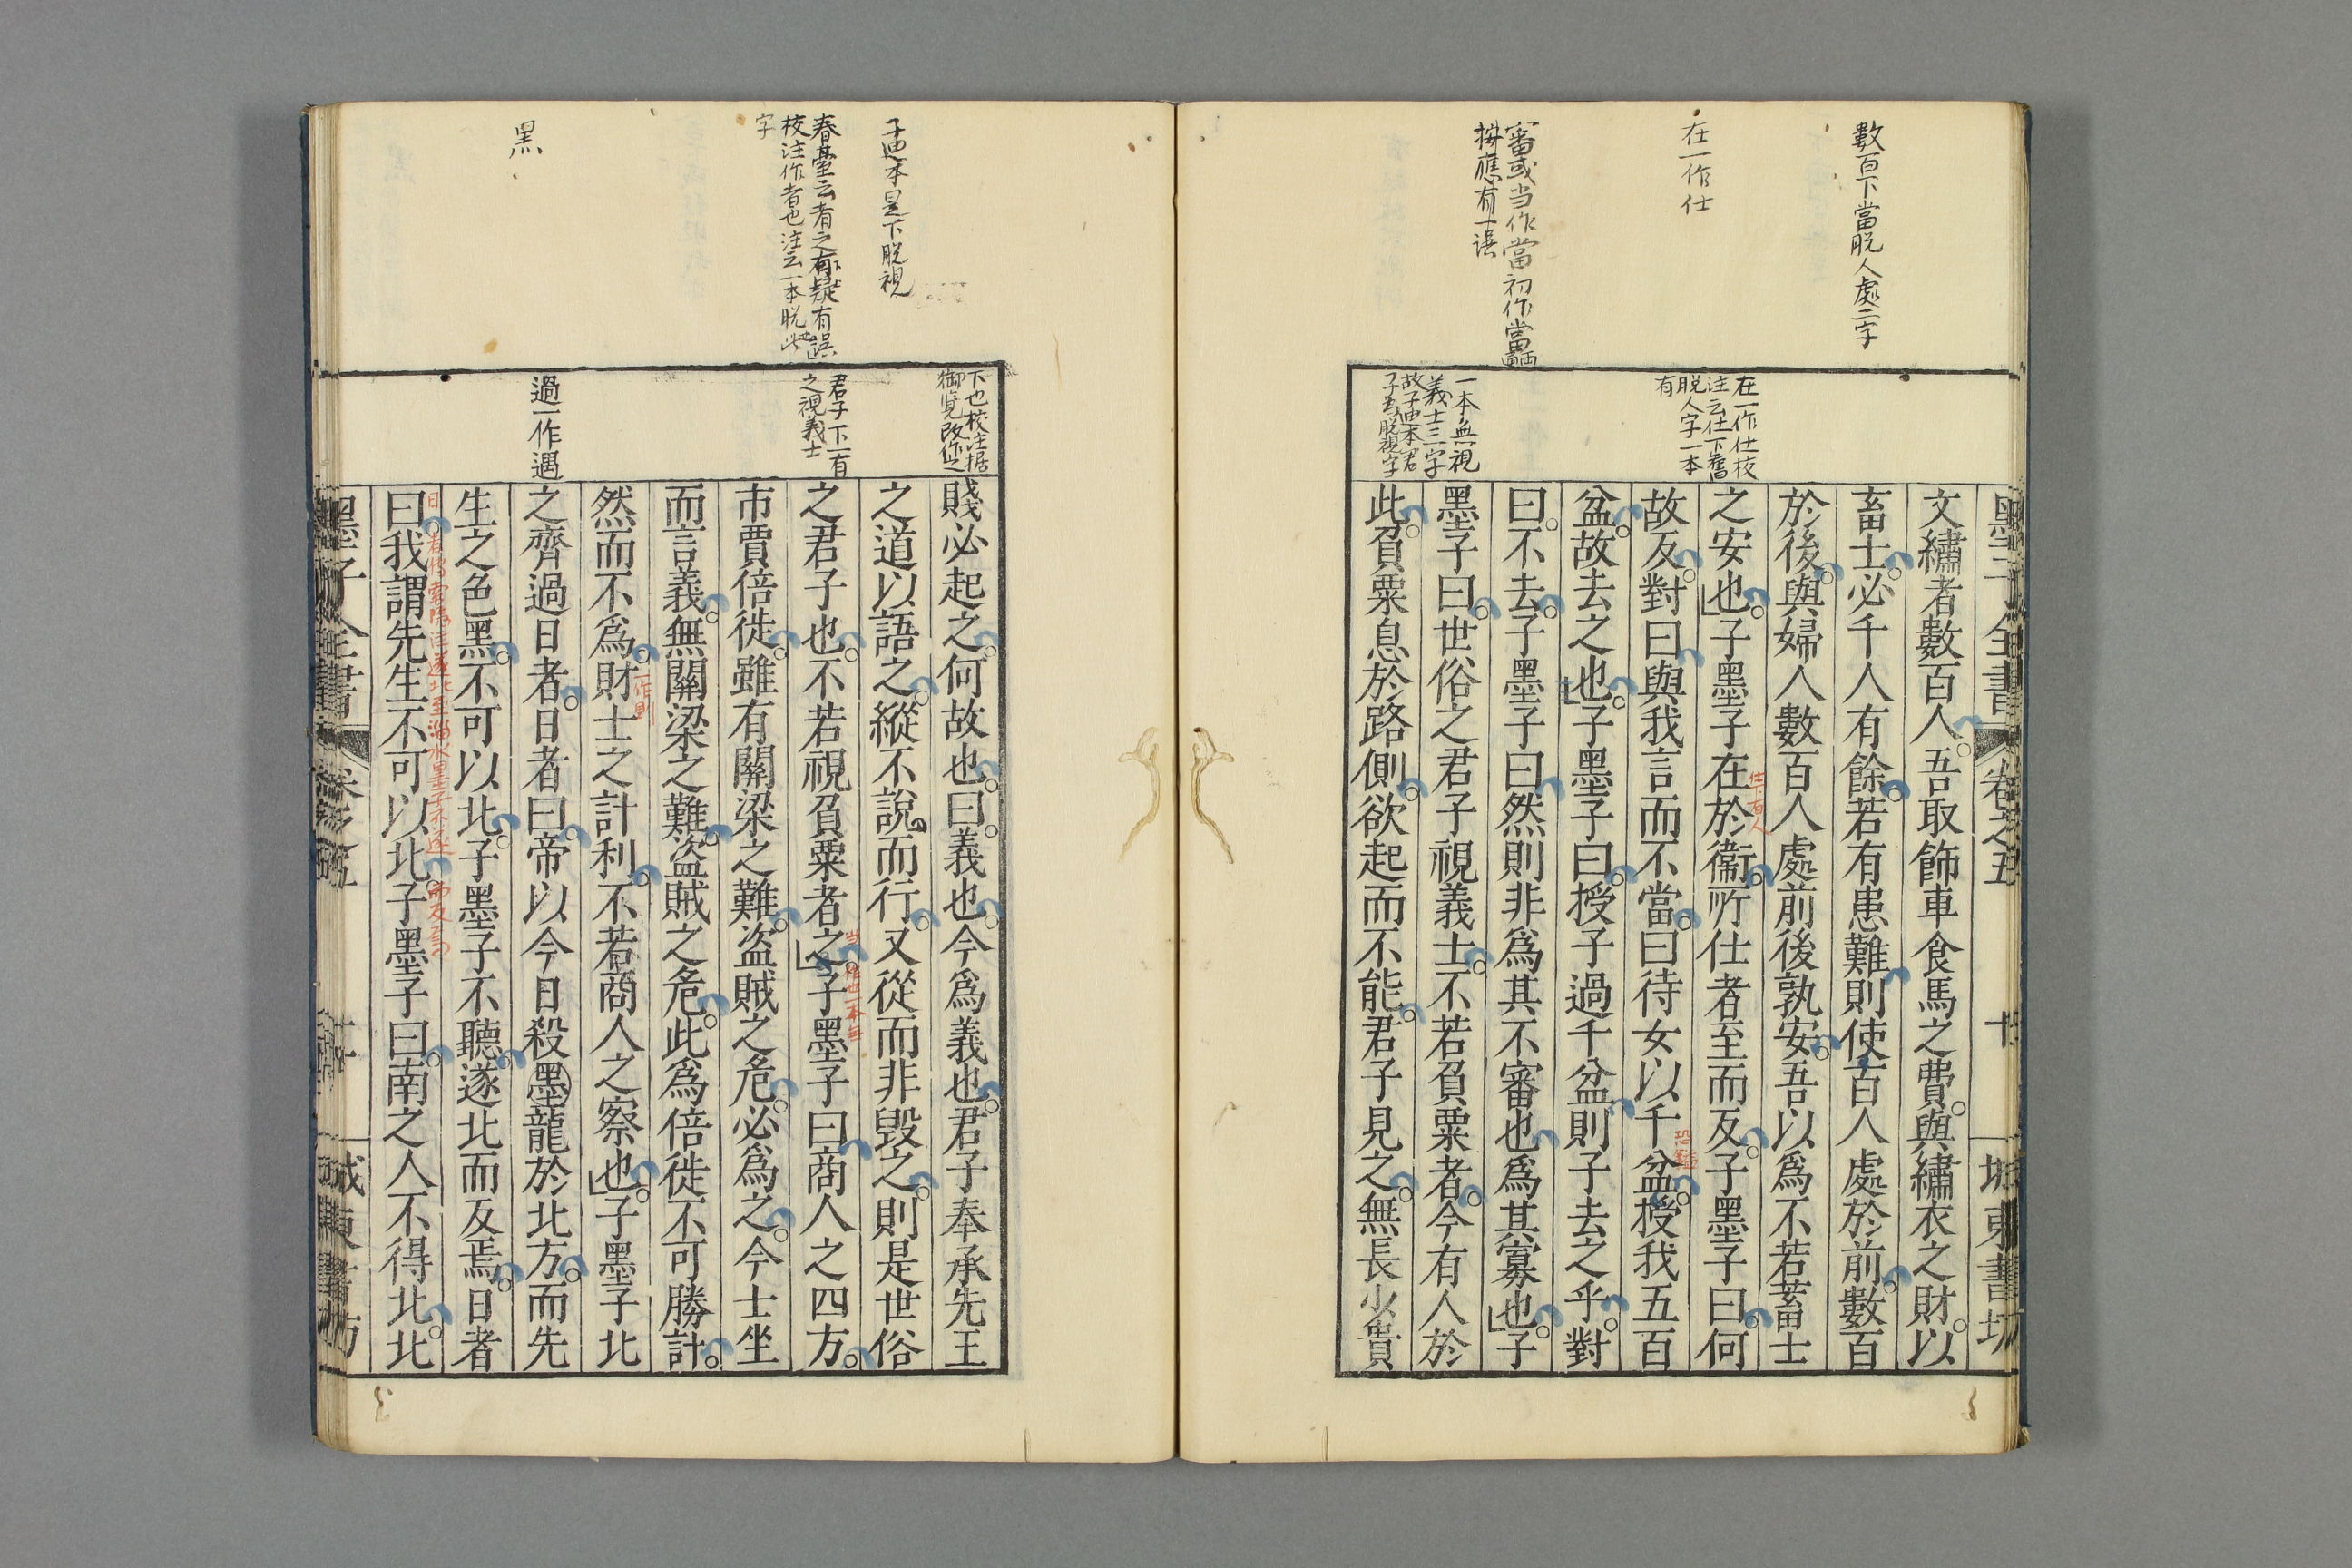 數百下當脱人處二字
在一作仕
審或当作當初作當
按應有一誤
在一作仕校
注云仕下舊
脱人字一本
有
一本無視
義士三字
墨子全書
卷之五
十
文繡者數百人吾取飾車食馬之費與繡衣之財以
畜士必千人有餘若有患難則使百人處於前數百
於後與婦人數百人處前後孰安吾以爲不若蓄士
之安也子墨子在於衞所仕者至而反子墨子曰何
故反對曰與我言而不當曰待女以千盆授我五百
盆故去之也子墨子曰授子過千盆則子去之乎對
曰不去子墨子曰然則非爲其不審也爲其寡也子
墨子曰世俗之君子視義士不若負粟者今有人於
此負粟息於路側欲起而不能君子見之無長少貴
子迪本是下脱視
春臺云者之下疑有誤
校注作者也注云一本脱此
字
黑
下也校注据
御覧改作之
君子下一有
之視義士
過一作遇
賤必起之何故也曰義也今爲義也君子奉承先王
之道以語之縱不說而行又從而非毀之則是世俗
之君子也不若視負粟者之子墨子曰商人之四方
市賈倍徙雖有關梁之難盜賊之危必爲之今士坐
而言義無關梁之難盜賊之危此爲倍徙不可勝計
然而不爲財士之計利不若商人之察也子墨子北
一作則
之齊過日者日者曰帝以今日殺墨龍於北方而先
生之色黑不可以北子墨子不聽遂北而反焉日者
曰我謂先生不可以北子墨子曰南之人不得北北
墨子全書